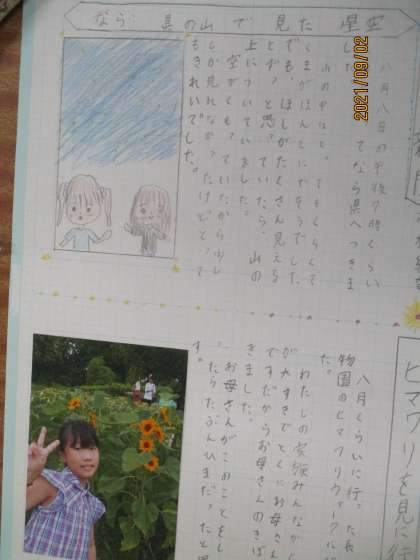 2021/09/02
なら県の山で見た星空
八月八日の午後7時くらい
てなら県へつきま
した。
山の中はとてもくらくて
くまがほんとにでそうでした
でも、ほしがたくさん見える
とずっと思っていたら、山の
上についていました。
空がくもっていたから少し
しか見れなかったけどとって
もきれいでした。
ヒマワリを見に行
八月くらいに行った長
物園のヒマワリウォークに
た。
わたしの家族みんなが
がやすきでとくにお母さん
ですだからお母さんのきぼ
きました。
お母さんがこのことをし
ったらたぶんひまだったと
す。